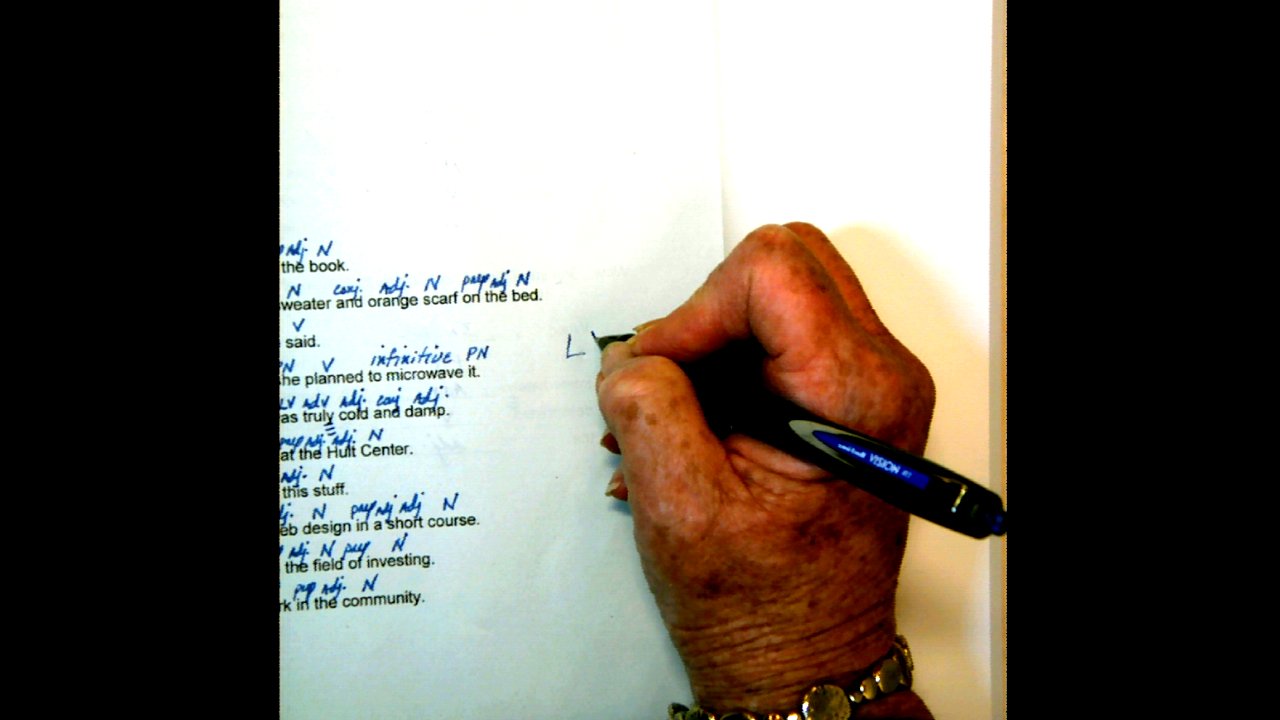 Adj. N
the book.
N conj. Adj. N prep Adj N
sweater and orange scarf on the bed.
V
said.
PN V infinitive PN
she planned to microwave it.
LV Adv Adj. conj Adj.
as truly cold and damp.
prep Adj. Adj. N
at the Hult Center.
Adj. N
this stuff.
N prep Adj Adj N
eb design in a short course.
Adj. N prep N
the field of investing.
prep Adj. N
rk in the community.
L
VISION